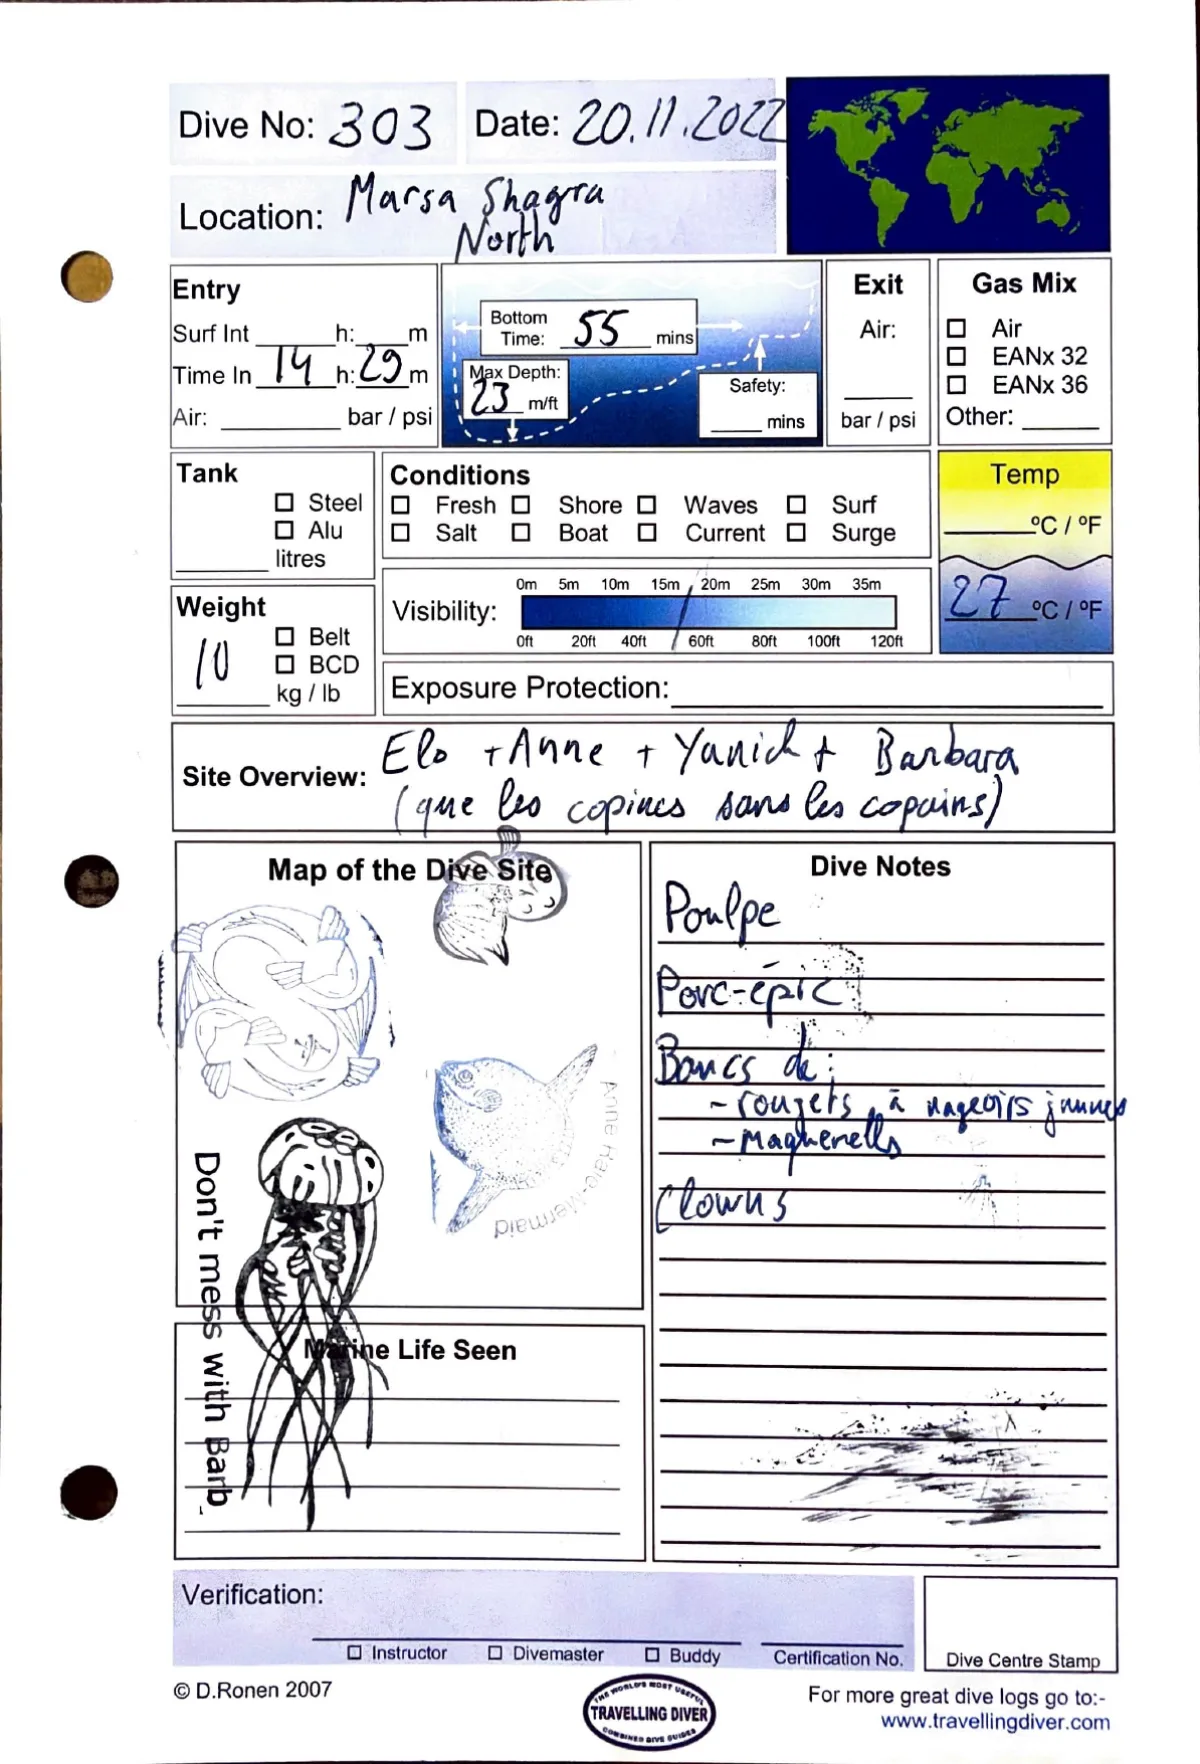 Dive No: 303
Date: 20.11.2022
Location: Marsa Shagra
North
Entry
Surf Int ______h:____m
Time In 14 h: 29 m
Air: ________ bar / psi
Bottom
Time: 55 mins
Max Depth:
23 m/ft
Safety:
____ mins
Exit
Air:
bar / psi
Gas Mix
☐ Air
☐ EANx 32
☐ EANx 36
Other: _____
Tank
☐ Steel
☐ Alu
______ litres
Conditions
☐ Fresh ☐ Shore ☐ Waves ☐ Surf
☐ Salt ☐ Boat ☐ Current ☐ Surge
Temp
______ºC / ºF
27 ºC / ºF
Weight
☐ Belt
10 ☐ BCD
kg / lb
0m 5m 10m 15m 20m 25m 30m 35m
Visibility:
0ft 20ft 40ft 60ft 80ft 100ft 120ft
Exposure Protection:
Site Overview: Elo + Anne + Yanick + Barbara
(que les copines sans les copains)
Map of the Dive Site
Anne Haro-Mermaid
Don't mess with Barb
Marine Life Seen
Dive Notes
Poulpe
Porc-épic
Bancs de:
- rougets à nageoirs jaunes
- maquerells
Clowns
Verification:
☐ Instructor ☐ Divemaster ☐ Buddy Certification No.
Dive Centre Stamp
© D.Ronen 2007
THE WORLD'S MOST USEFUL
TRAVELLING DIVER
COMBINED DIVE GUIDES
For more great dive logs go to:-
www.travellingdiver.com